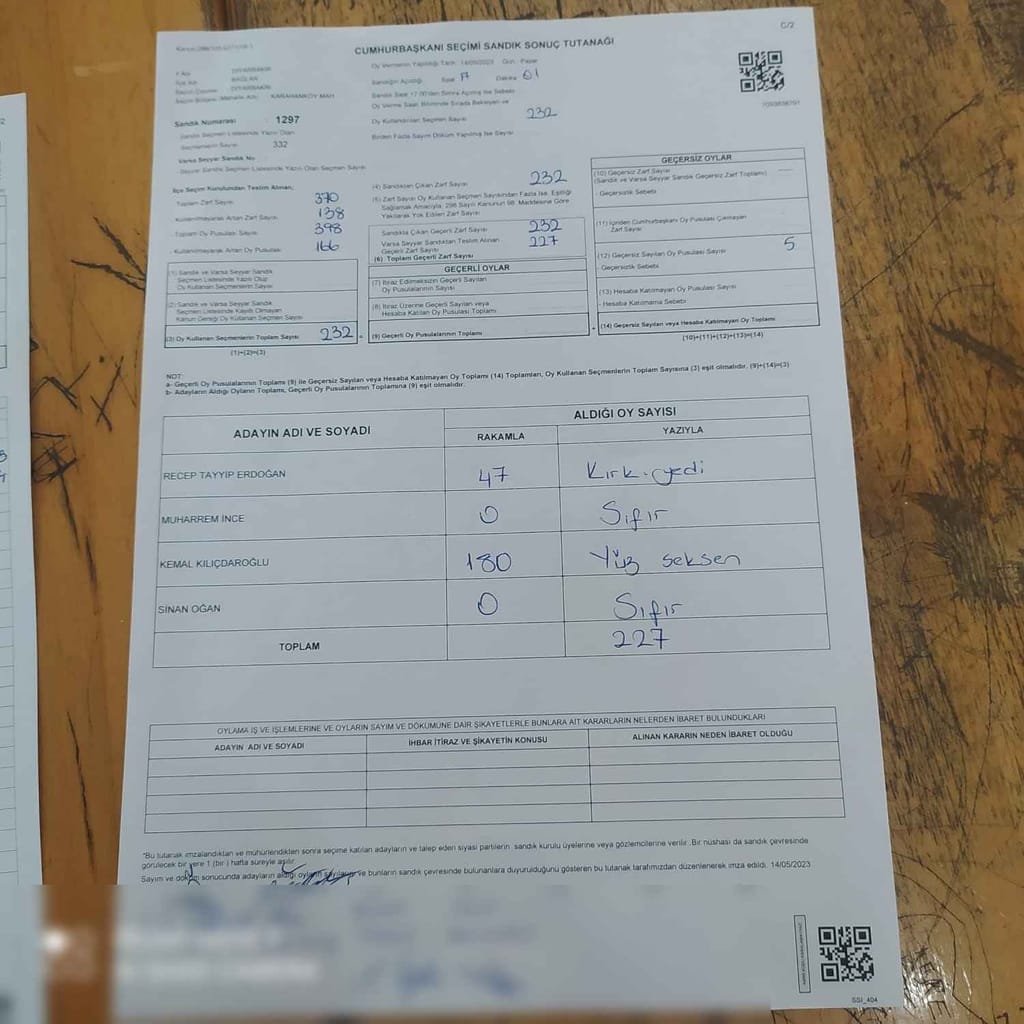 C/2
CUMHURBAŞKANI SEÇİMİ SANDIK SONUÇ TUTANAĞI
Oy Vermenin Yapıldığı Tarih: 14/05/2023 Gün: Pazar
İl Adı DİYARBAKIR
İlçe Adı BAĞLAR
Seçim Çevresi DİYARBAKIR
KARAHANKÖY MAH.
Sandığın Açıldığı Saat 17 Dakika 01
Sandık Saat 17:00'den Sonra Açılmış İse Sebebi
Oy Verme Saati Bitiminde Sırada Bekleyen ve
Oy Kullandırılan Seçmen Sayısı 232
Birden Fazla Sayım Döküm Yapılmış İse Sayısı
Sandık Numarası : 1297
Sandık Seçmen Listesinde Yazılı Olan
Seçmenlerin Sayısı 332
Varsa Seyyar Sandık No
Seyyar Sandık Seçmen Listesinde Yazılı Olan Seçmen Sayısı
İlçe Seçim Kurulundan Teslim Alınan;
Toplam Zarf Sayısı 370
Kullanılmayarak Artan Zarf Sayısı 138
Toplam Oy Pusulası Sayısı 398
Kullanılmayarak Artan Oy Pusulası 166
(1) Sandık ve Varsa Seyyar Sandık
Seçmen Listesinde Yazılı Olup
Oy Kullanan Seçmenlerin Sayısı
(2) Sandık ve Varsa Seyyar Sandık
Seçmen Listesinde Kayıtlı Olmayan
Kanun Gereği Oy Kullanan Seçmen Sayısı
(3) Oy Kullanan Seçmenlerin Toplam Sayısı 232
(1)+(2)=(3)
(4) Sandıktan Çıkan Zarf Sayısı 232
(5) Zarf Sayısı Oy Kullanan Seçmen Sayısından Fazla İse, Eşitliği
Sağlamak Amacıyla, 298 Sayılı Kanunun 98. Maddesine Göre
Yakılarak Yok Edilen Zarf Sayısı
Sandıkta Çıkan Geçerli Zarf Sayısı 232
Varsa Seyyar Sandıktan Teslim Alınan 227
Geçerli Zarf Sayısı
(6) Toplam Geçerli Zarf Sayısı
GEÇERLİ OYLAR
(7) İtiraz Edilmeksizin Geçerli Sayılan
Oy Pusulalarının Sayısı
(8) İtiraz Üzerine Geçerli Sayılan veya
Hesaba Katılan Oy Pusulası Toplamı
(9) Geçerli Oy Pusulalarının Toplamı
GEÇERSİZ OYLAR
(10) Geçersiz Zarf Sayısı
(Sandık ve Varsa Seyyar Sandık Geçersiz Zarf Toplamı)
Geçersizlik Sebebi
(11) İçinden Cumhurbaşkanı Oy Pusulası Çıkmayan
Zarf Sayısı
(12) Geçersiz Sayılan Oy Pusulası Sayısı 5
Geçersizlik Sebebi
(13) Hesaba Katılmayan Oy Pusulası Sayısı
Hesaba Katılmama Sebebi
(14) Geçersiz Sayılan veya Hesaba Katılmayan Oy Toplamı
(10)+(11)+(12)+(13)=(14)
NOT:
a- Geçerli Oy Pusulalarının Toplamı (9) ile Geçersiz Sayılan veya Hesaba Katılmayan Oy Toplamı (14) Toplamları, Oy Kullanan Seçmenlerin Toplam Sayısına (3) eşit olmalıdır. (9)+(14)=(3)
b- Adayların Aldığı Oyların Toplamı, Geçerli Oy Pusulalarının Toplamına (9) eşit olmalıdır.
ADAYIN ADI VE SOYADI
ALDIĞI OY SAYISI
RAKAMLA YAZIYLA
RECEP TAYYİP ERDOĞAN 47 Kırk-yedi
MUHARREM İNCE 0 Sıfır
KEMAL KILIÇDAROĞLU 180 Yüz seksen
SİNAN OĞAN 0 Sıfır
TOPLAM 227
OYLAMA İŞ VE İŞLEMLERİNE VE OYLARIN SAYIM VE DÖKÜMÜNE DAİR ŞİKAYETLERLE BUNLARA AİT KARARLARIN NELERDEN İBARET BULUNDUKLARI
ADAYIN ADI VE SOYADI İHBAR İTİRAZ VE ŞİKAYETİN KONUSU ALINAN KARARIN NEDEN İBARET OLDUĞU
"Bu tutanak imzalandıktan ve mühürlendikten sonra seçime katılan adayların ve talep eden siyasi partilerin sandık kurulu üyelerine veya gözlemcilerine verilir. Bir nüshası da sandık çevresinde
görülecek bir yere 1 (bir) hafta süreyle asılır.
Sayım ve döküm sonucunda adayların aldığı oyların sayılarını ve bunların sandık çevresinde bulunanlara duyurulduğunu gösteren bu tutanak tarafımızdan düzenlenerek imza edildi. 14/05/2023
SSI_404